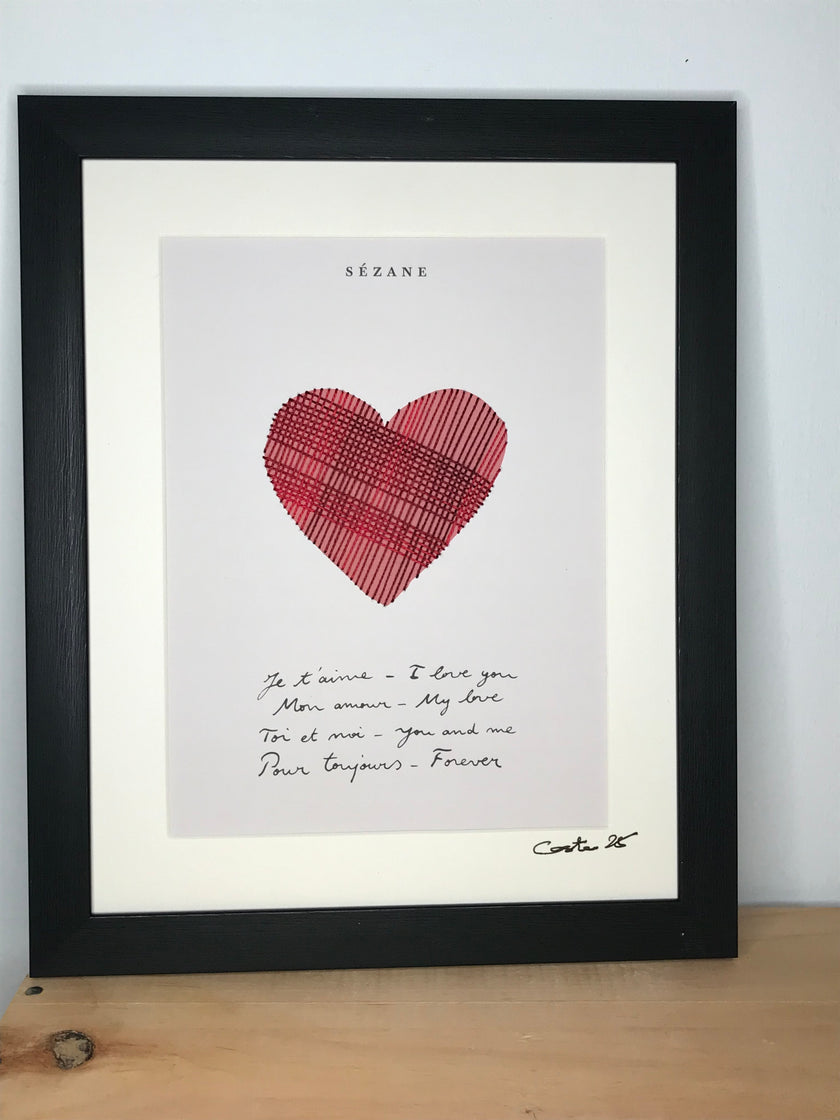 SÉZANE
Je t'aime - I love you
Mon amour - My love
Toi et moi - You and me
Pour toujours - Forever
25